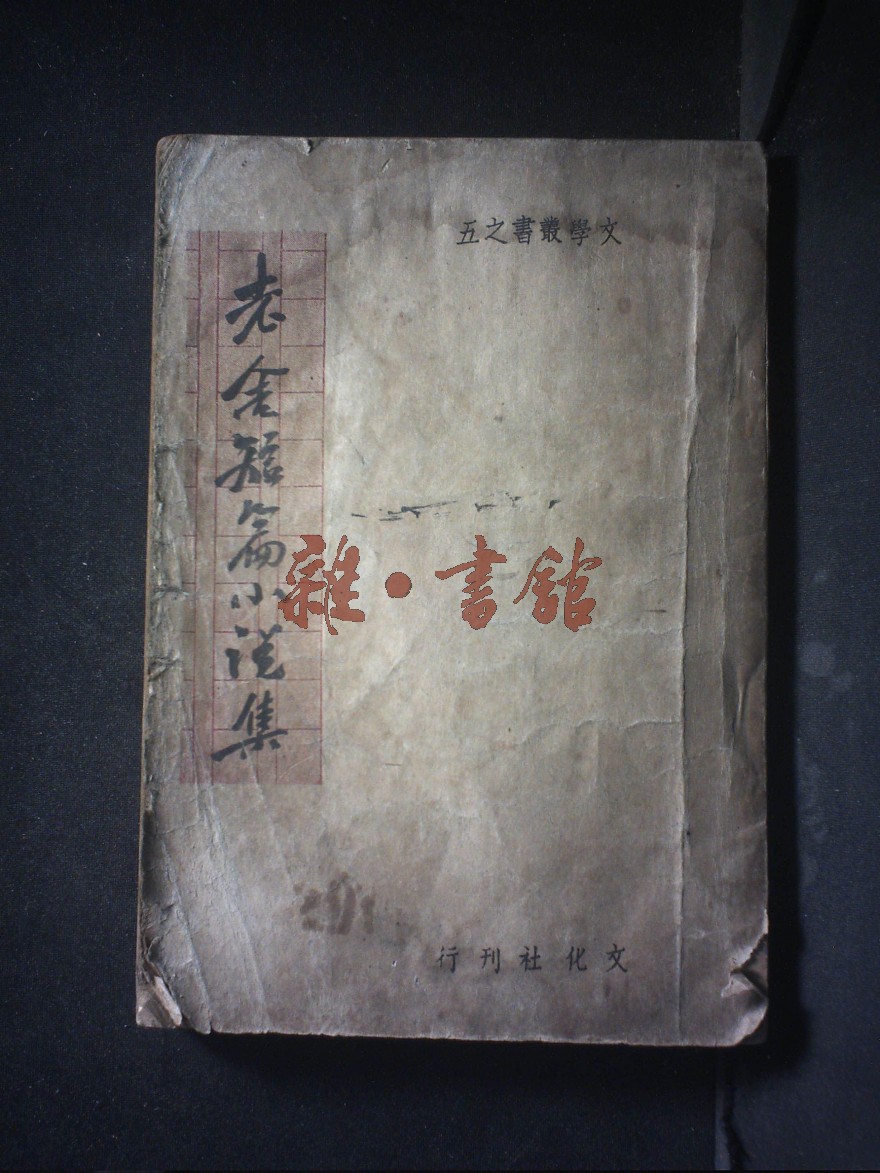 文學叢書之五
老舍短篇小說集
雜·書館
文化社刊行